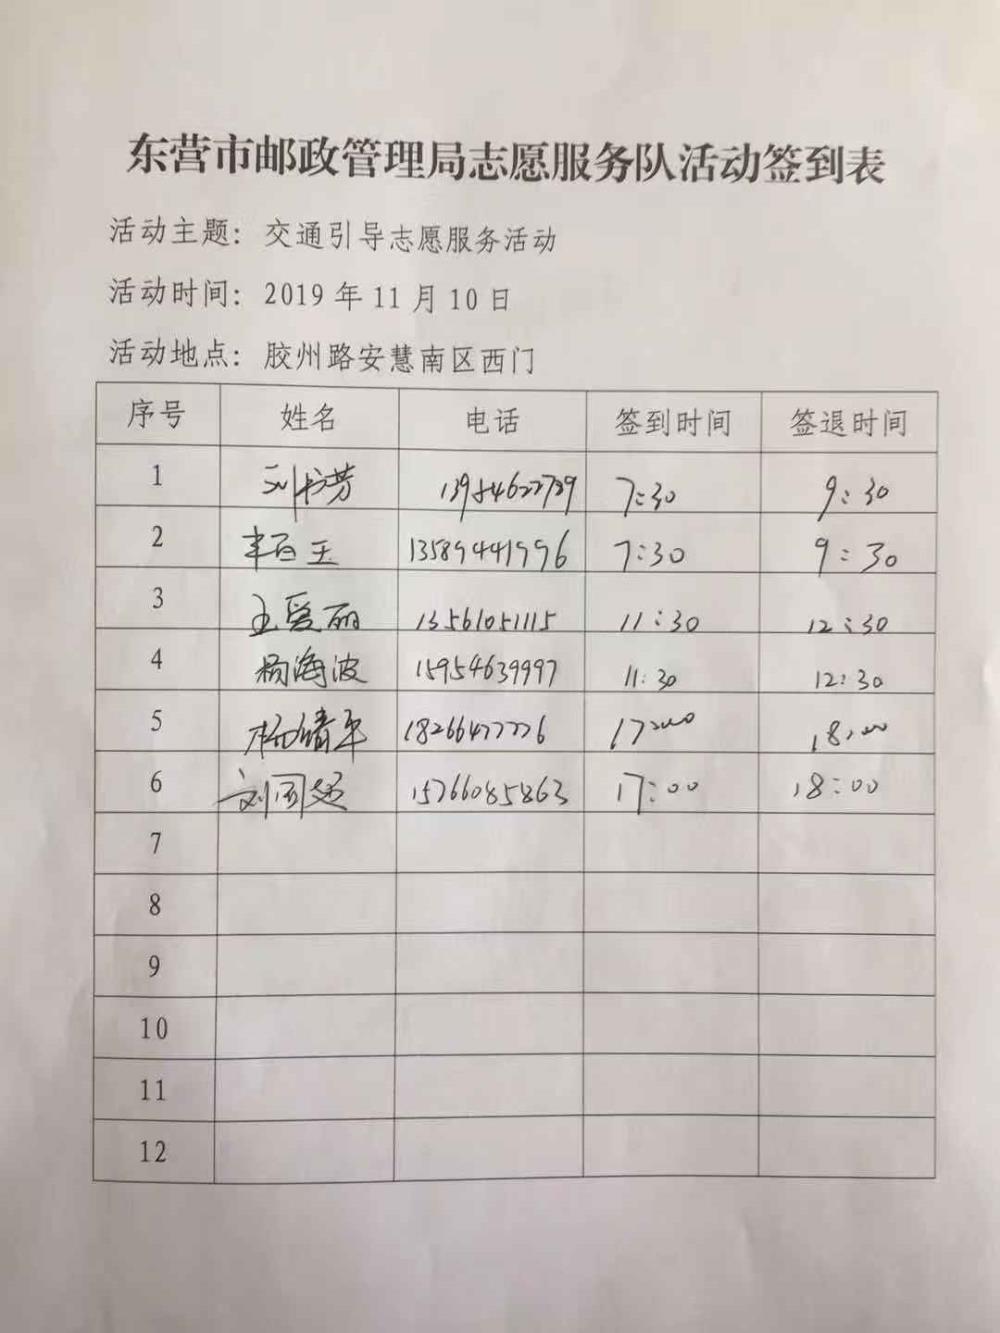 东营市邮政管理局志愿服务队活动签到表
活动主题：交通引导志愿服务活动
活动时间：2019年11月10日
活动地点：胶州路安慧南区西门
序号 姓名 电话 签到时间 签退时间
1 刘书芳 7:30 9:30
2 丰百玉 13589441996 7:30 9:30
3 王爱丽 13561051115 11:30 12:30
4 杨海波 15954639997 11:30 12:30
5 杨靖平 18266477776 17:00 18:00
6 刘同超 15766085863 17:00 18:00
7
8
9
10
11
12